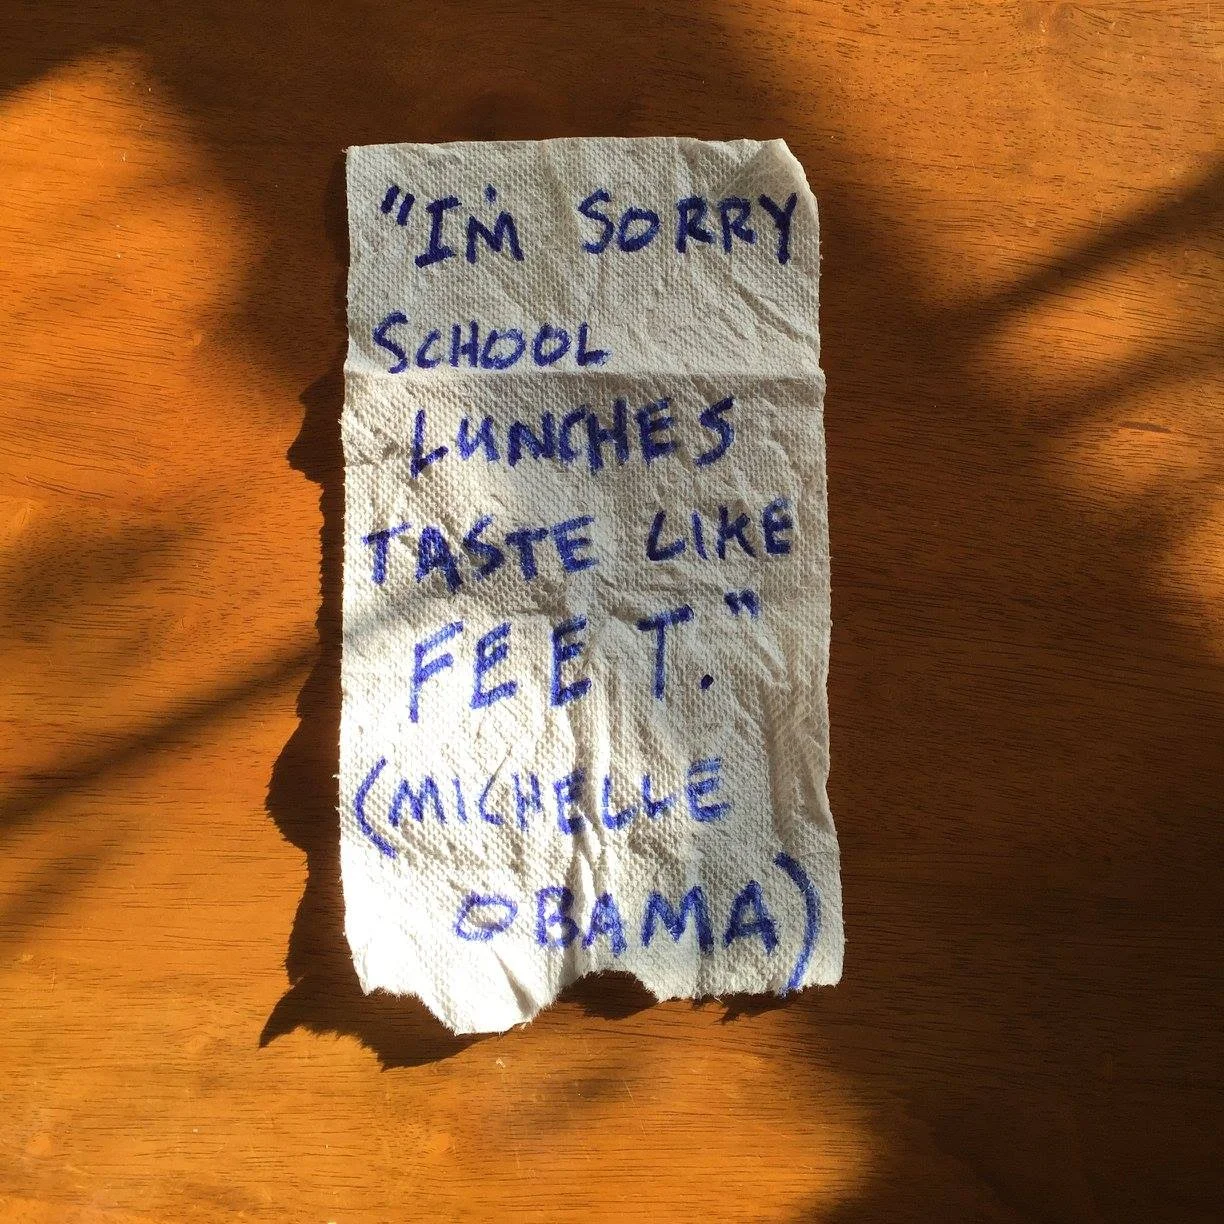 "I'M SORRY
SCHOOL
LUNCHES
TASTE LIKE
FEET."
(MICHELLE
OBAMA)